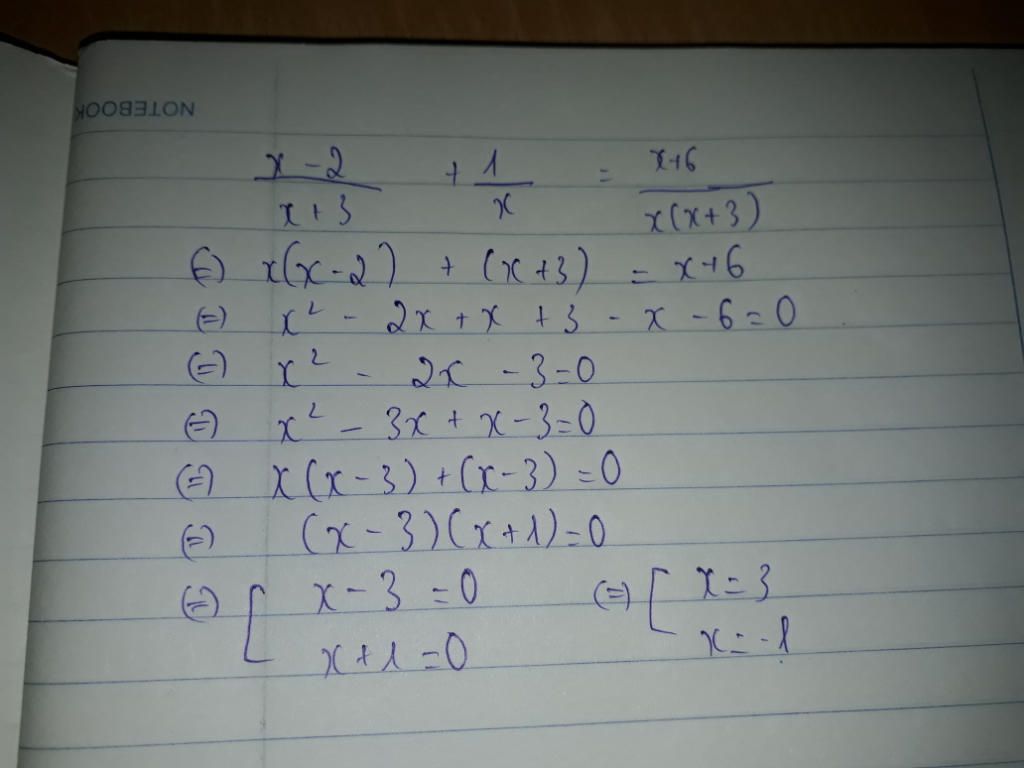 NOTEBOOK
x-2/x+3 + 1/x = x+6/x(x+3)
(=) x(x-2) + (x+3) = x+6
(=) x² - 2x + x + 3 - x - 6 = 0
(=) x² - 2x - 3 = 0
(=) x² - 3x + x - 3 = 0
(=) x(x-3) + (x-3) = 0
(=) (x-3)(x+1) = 0
(=) [ x-3 = 0 (=) [ x = 3
x+1 = 0 x = -1